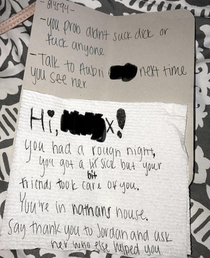 -you prob didnt suck dick or
fuck anyone
-Talk to Aubri next time
you see her
Hi, x!
you had a rough night,
you got a lil sick but your
bit
friends took care of you.
You're in nathans house.
Say thank you to Jordan and ask
her who else helped you